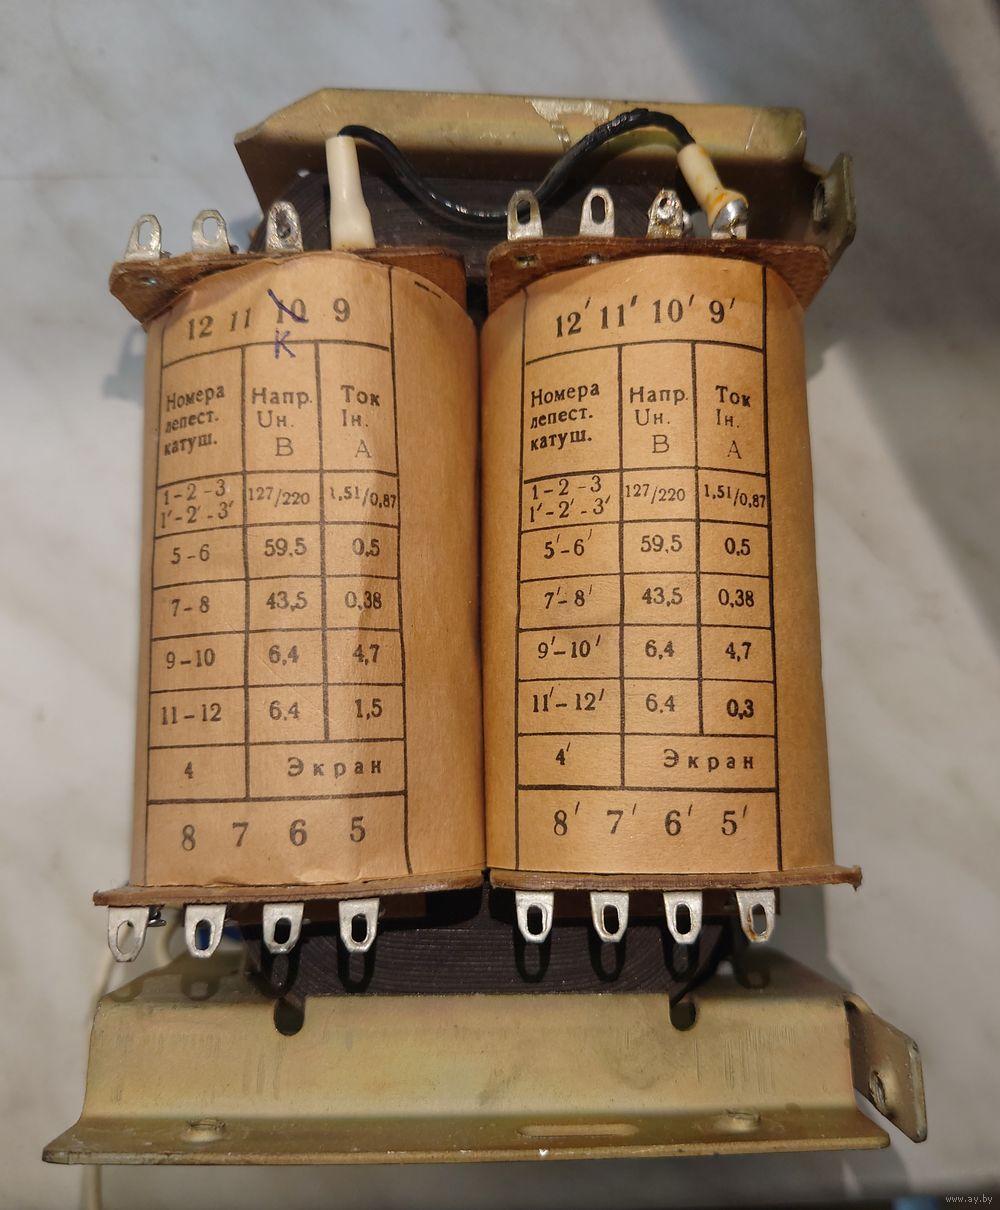 12 11 10 9
К
Номера лепест. катуш. Напр. Uн. В Ток Iн. А
1-2-3 1'-2'-3' 127/220 1,51/0,87
5-6 59,5 0,5
7-8 43,5 0,38
9-10 6,4 4,7
11-12 6,4 1,5
4 Экран
8 7 6 5
12' 11' 10' 9'
Номера лепест. катуш. Напр. Uн. В Ток Iн. А
1-2-3 1'-2'-3' 127/220 1,51/0,87
5'-6' 59,5 0,5
7'-8' 43,5 0,38
9'-10' 6,4 4,7
11'-12' 6,4 0,3
4' Экран
8' 7' 6' 5'
www.ay.by